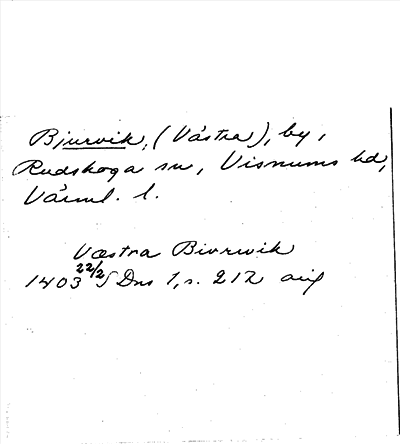 Bjurvik, (Västra), by,
Rudskoga sn, Visnums hd,
Värml. l.
Væstra Bivrwik
1403 22/2 SDns 1, s. 212 aif